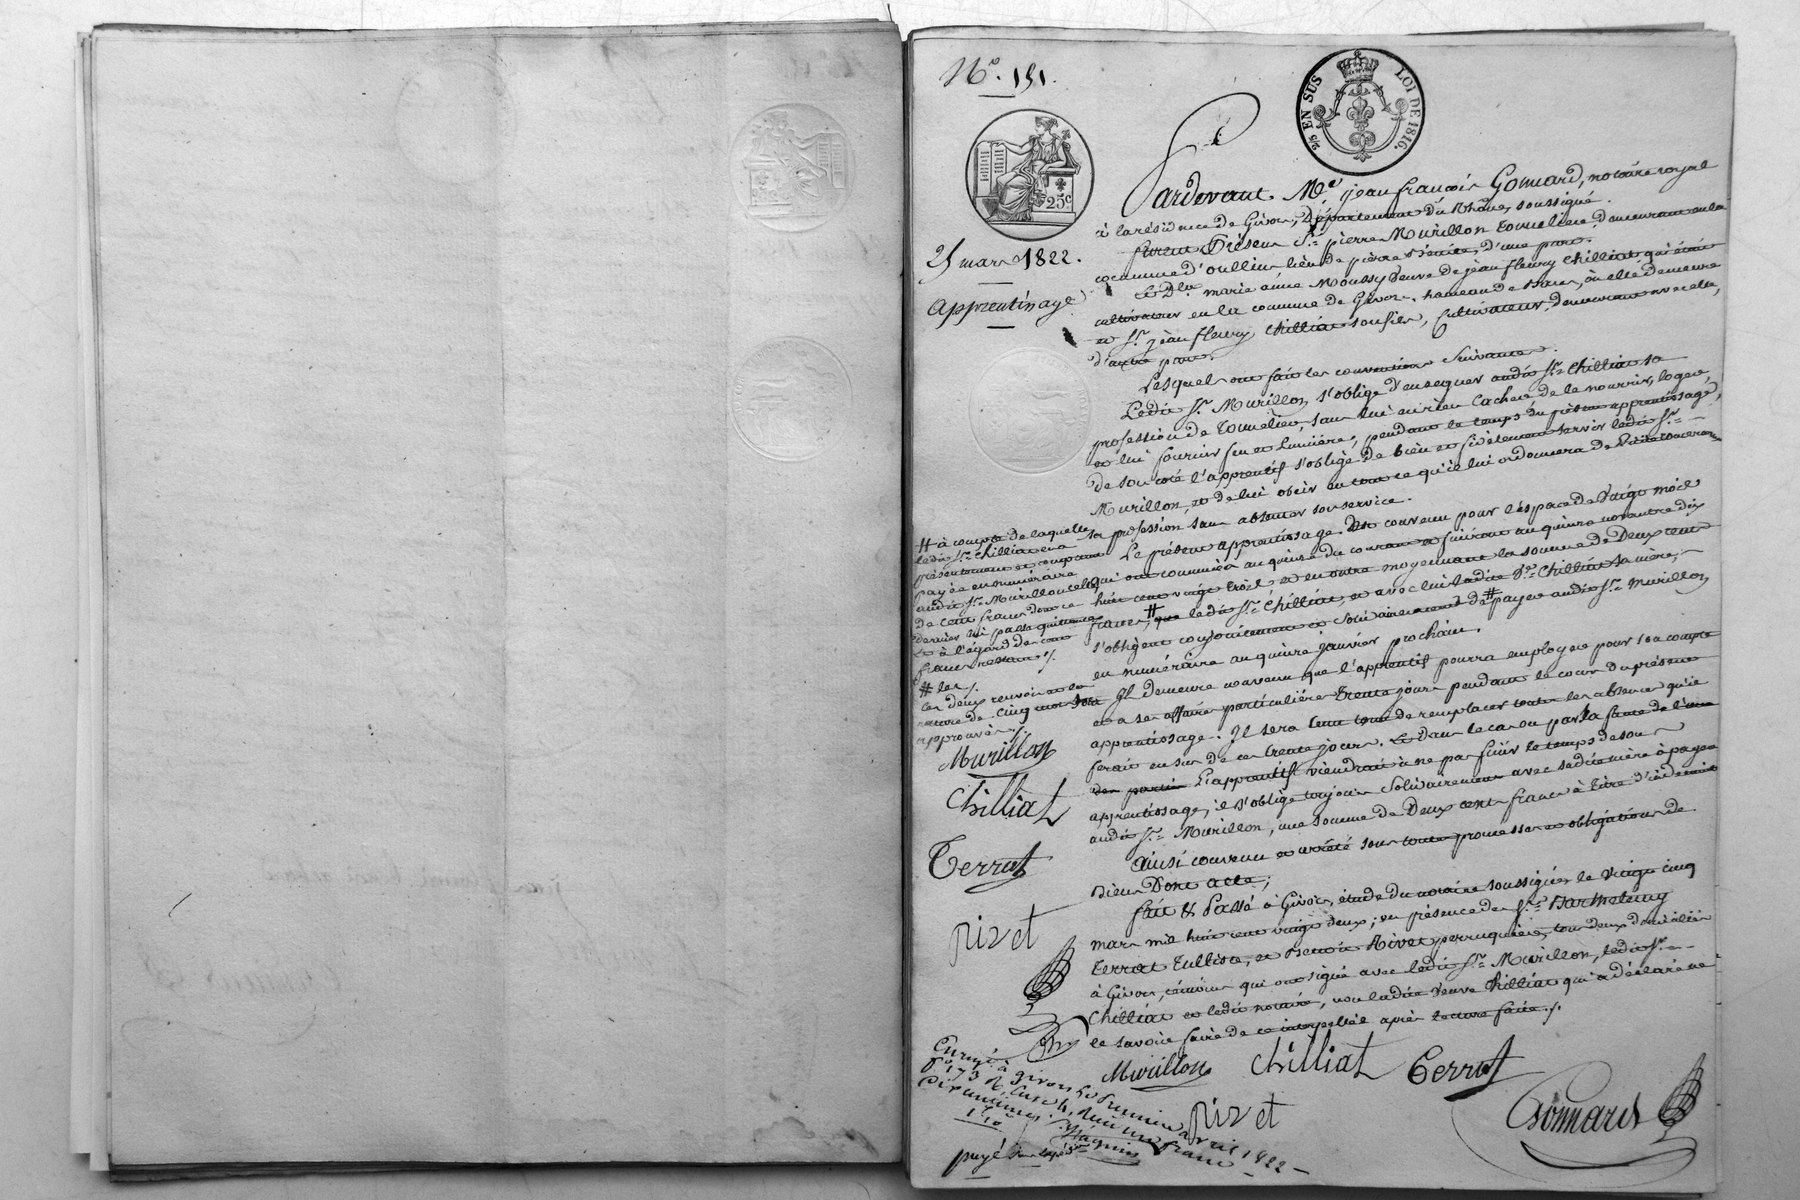 N.º 151.
2/5 EN SUS LOI DE 1816.
25ᶜ
25 mars 1822.
Apprentissage
Pardevant Mᵉ jean françois Gonnard, notaire royal
à la résidence de Givors, Département du Rhône, soussigné.
furent Présens Sʳ pierre Murillon tonnelier demeurant en la
commune d'oullins lieu de pierre Bénite, d'une part.
Et Dᵐᵉ marie anne Moussy veuve de jean fleury Chilliat qui était
cultivateur en la commune de Givors, hameau de , où elle demeure
et Sʳ jean fleury Chilliat son fils, Cultivateur, demeurant avec elle,
d'autre part.
Lesquels ont fait les conventions suivantes.
Ledit Sʳ Murillon s'oblige d'enseigner audit Sʳ Chilliat sa
profession de tonnelier, sans lui en rien cacher, de le nourrir, loger,
et lui fournir feu et lumière, pendant le temps du présent apprentissage,
de son coté l'apprentif s'oblige de bien et fidèlement servir ledit Sʳ
Murillon, et de lui obéir en tout ce qu'il lui ordonnera de
sa profession sans absenter son service.
Le présent apprentissage est convenu pour l'espace de vingt mois
qui ont commencé au quinze du courant et finiront au quinze novembre dix
huit cent vingt trois et en outre moyennant la somme de Deux cent
francs, # que ledit Sʳ Chilliat, et avec lui ladite Dᵐᵉ Chilliat sa mère,
s'obligent conjointement et solidairement de # payer audit Sʳ Murillon
en numéraire au quinze janvier prochain.
Il demeure convenu que l'apprentif pourra employer pour son compte
et à ses affaires particulières trente jours pendant le cours du présent
apprentissage. Il sera tenu de remplacer toutes les absences qu'il
ferait en sus de ces trente jours. Et dans le cas ou par la faute de l'une
des parties l'apprentif viendrait à ne pas finir le temps de son
apprentissage, il s'oblige toujours solidairement avec sadite mère à payer
audit Sʳ Murillon, une somme de Deux cents francs à titre d'indemnité
Ainsi convenu et arrêté sous toutes promesses et obligations de
Dont acte,
fait & Passé à Givors, étude du notaire soussigné, le vingt cinq
mars mil huit cent vingt deux, en présence des Sʳˢ Barthelemy
Terrat Tulliste, et Benoit Rivet perruquier, tous deux domiciliés
à Givors, témoins qui ont signé avec ledit Sʳ Murillon, ledit Sʳ
Chilliat et ledit notaire, non ladite veuve Chilliat qui a déclaré ne
le savoir faire de ce interpellée après lecture faite./.
# à compte de laquelle
ledit Sʳ Chilliat en a
présentement et comptant
payé en numéraire
audit Sʳ Murillon celle
de cent francs dont ce
dernier lui passe quittance
et à l'égard des cent
francs restants ./.
# les ./.
les deux renvois et la
rature de cinq mots sont
approuvés ./.
Murillon
Chilliat
Terrat
rivet
Murillon Chilliat Terrat
rivet Gonnard
Enregé à givors le Premier avril 1822
fº 173 Rº Case 4, Reçu un franc
dix centimes.
1.10
payé